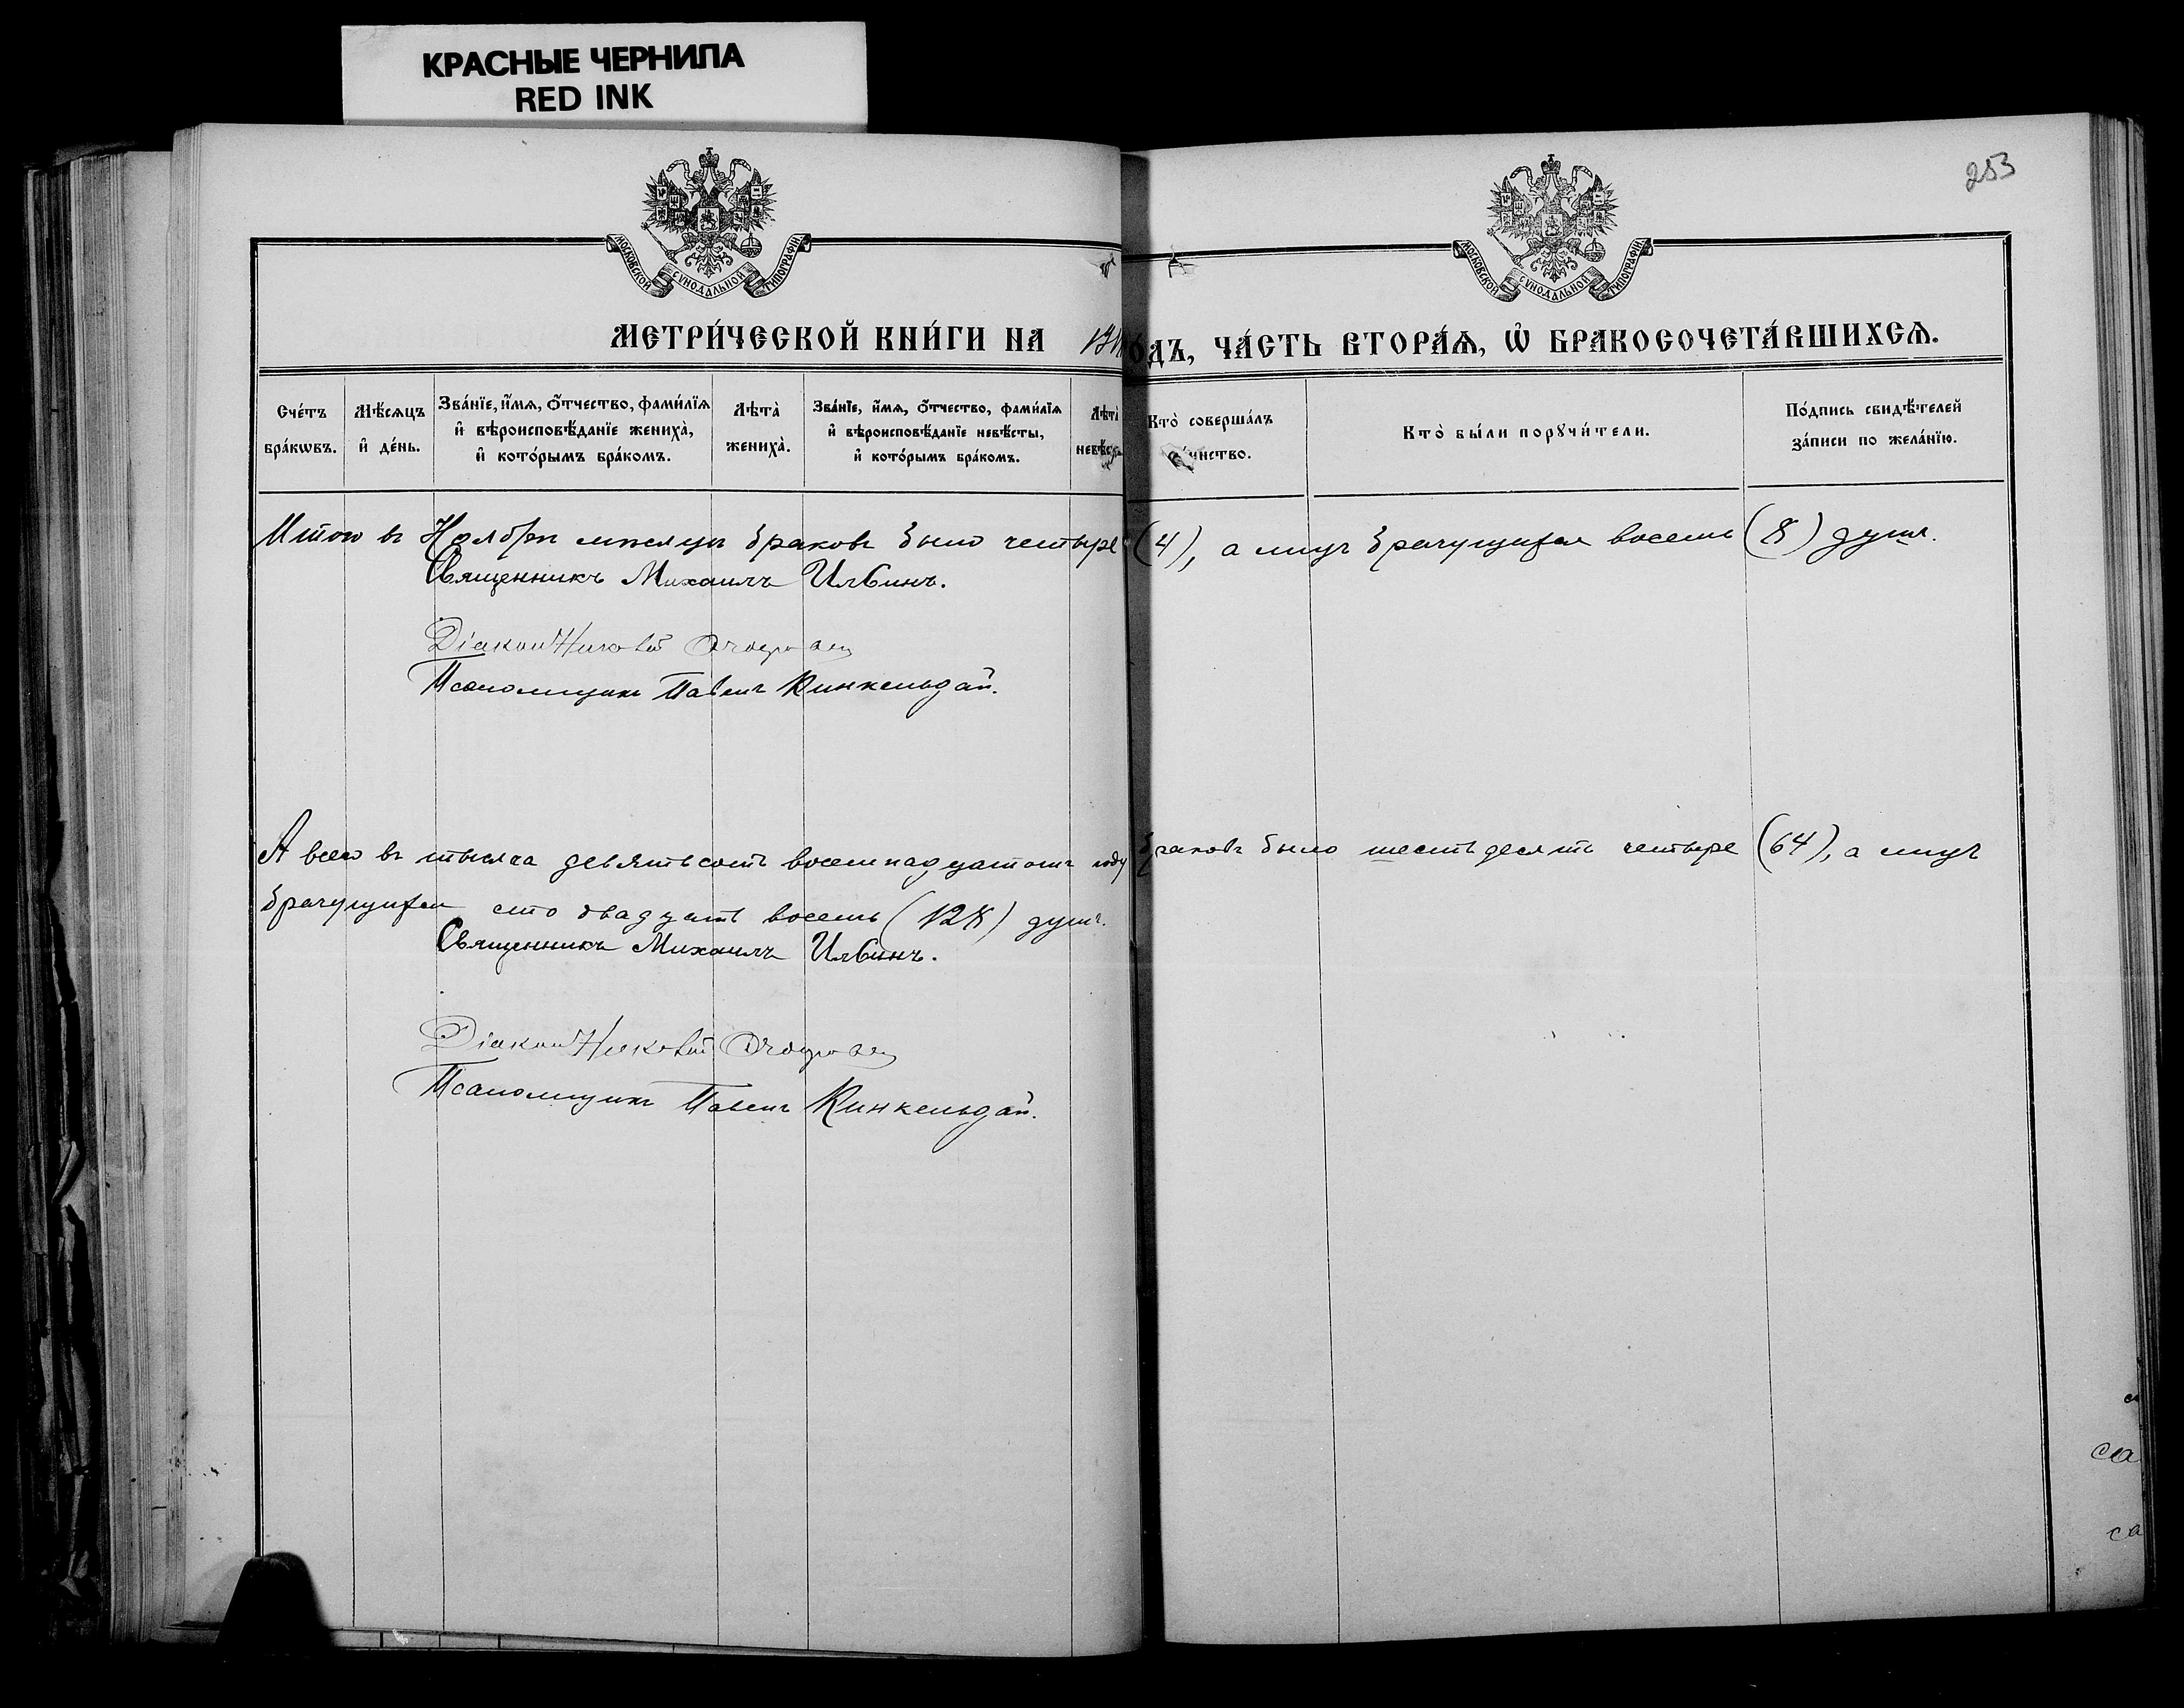 КРАСНЫЕ ЧЕРНИЛА
RED INK
253
МОСКОВСКОЙ СѴНОДАЛЬНОЙ ТИПОГРАФІИ.
МОСКОВСКОЙ СѴНОДАЛЬНОЙ ТИПОГРАФІИ.
МЕТРИ́ЧЕСКОЙ КНИ́ГИ НА ОДЪ, ЧА́СТЬ ВТОРА́Ѧ, Ѡ҆ БРАКОСОЧЕТА́ВШИХСѦ.
Сче́тъ бра́кѡвъ.
Мѣ́сѧцъ и҆ де́нь.
Зва́нїе, и҆́мѧ, ѻ҆́тчество, фами́лїѧ и҆ вѣроисповѣ́данїе жениха̀, и҆ кото́рымъ бра́комъ.
Лѣта̀ жениха̀.
Зва́нїе, и҆́мѧ, ѻ҆́тчество, фами́лїѧ и҆ вѣроисповѣ́данїе невѣ́сты, и҆ кото́рымъ бра́комъ.
Лѣта̀
Кто̀ соверша́лъ
Кто̀ бы́ли порꙋчи́тели.
По́дпись свидѣ́телей за́писи по жела́нїю.
Итого въ Ноябрѣ мѣсяцѣ браковъ было четыре (4), а лицъ брачущихся восемь (8) душъ.
Священникъ Михаилъ Ильинъ.
Діакон
Псаломщикъ Павелъ Кинкельдай.
А всего въ тысяча девятьсотъ восемнадцатомъ году браковъ было шестьдесятъ четыре (64), а лицъ
брачущихся сто двадцать восемь (128) душъ.
Священникъ Михаилъ Ильинъ.
Діакон
Псаломщикъ Павелъ Кинкельдай.
са
са